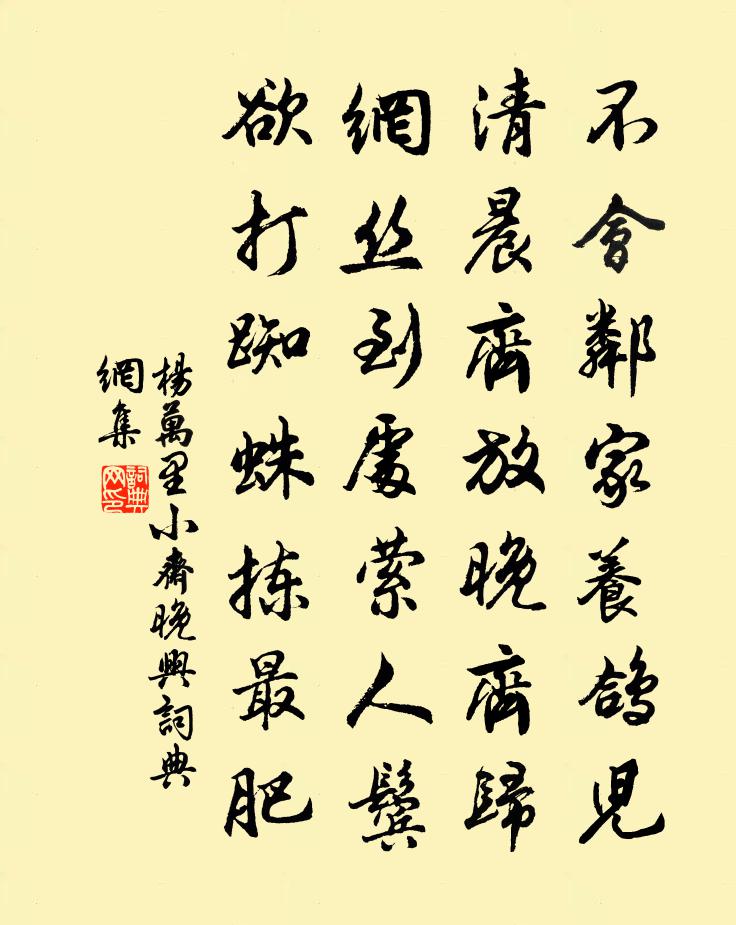 不會鄰家養鴿兒
清晨齊放晚齊歸
網丝到處萦人鬓
欲打蜘蛛拣最肥
楊萬里小齋晚興詞典
網集
詞典
网印